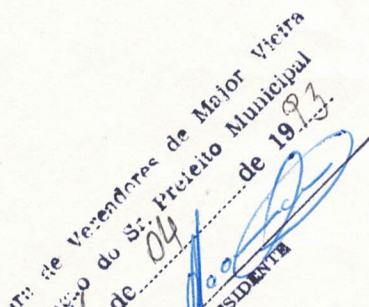 de Vereadores de Major Vieira
do Sr. Prefeito Municipal
de 04 de 1993